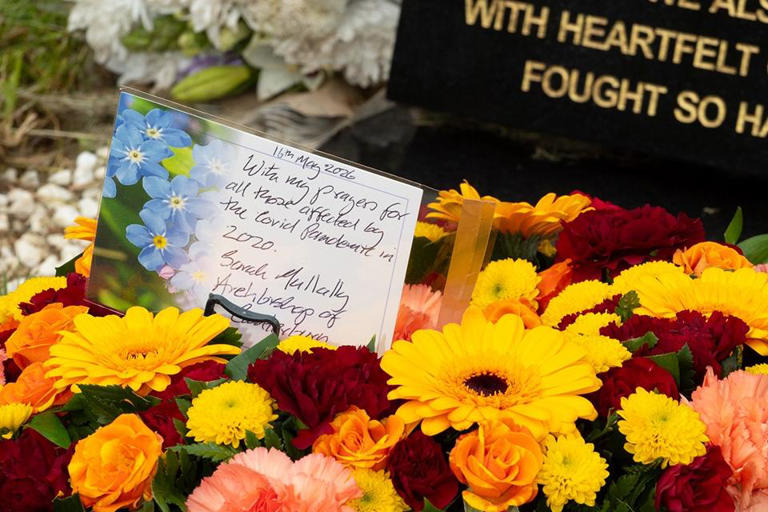 ALS
WITH HEARTFELT
FOUGHT SO HA
16th May 2026
With my prayers for
all those affected by
the Covid Pandemic in
2020.
Sarah Mullally
Archbishop of
Canterbury